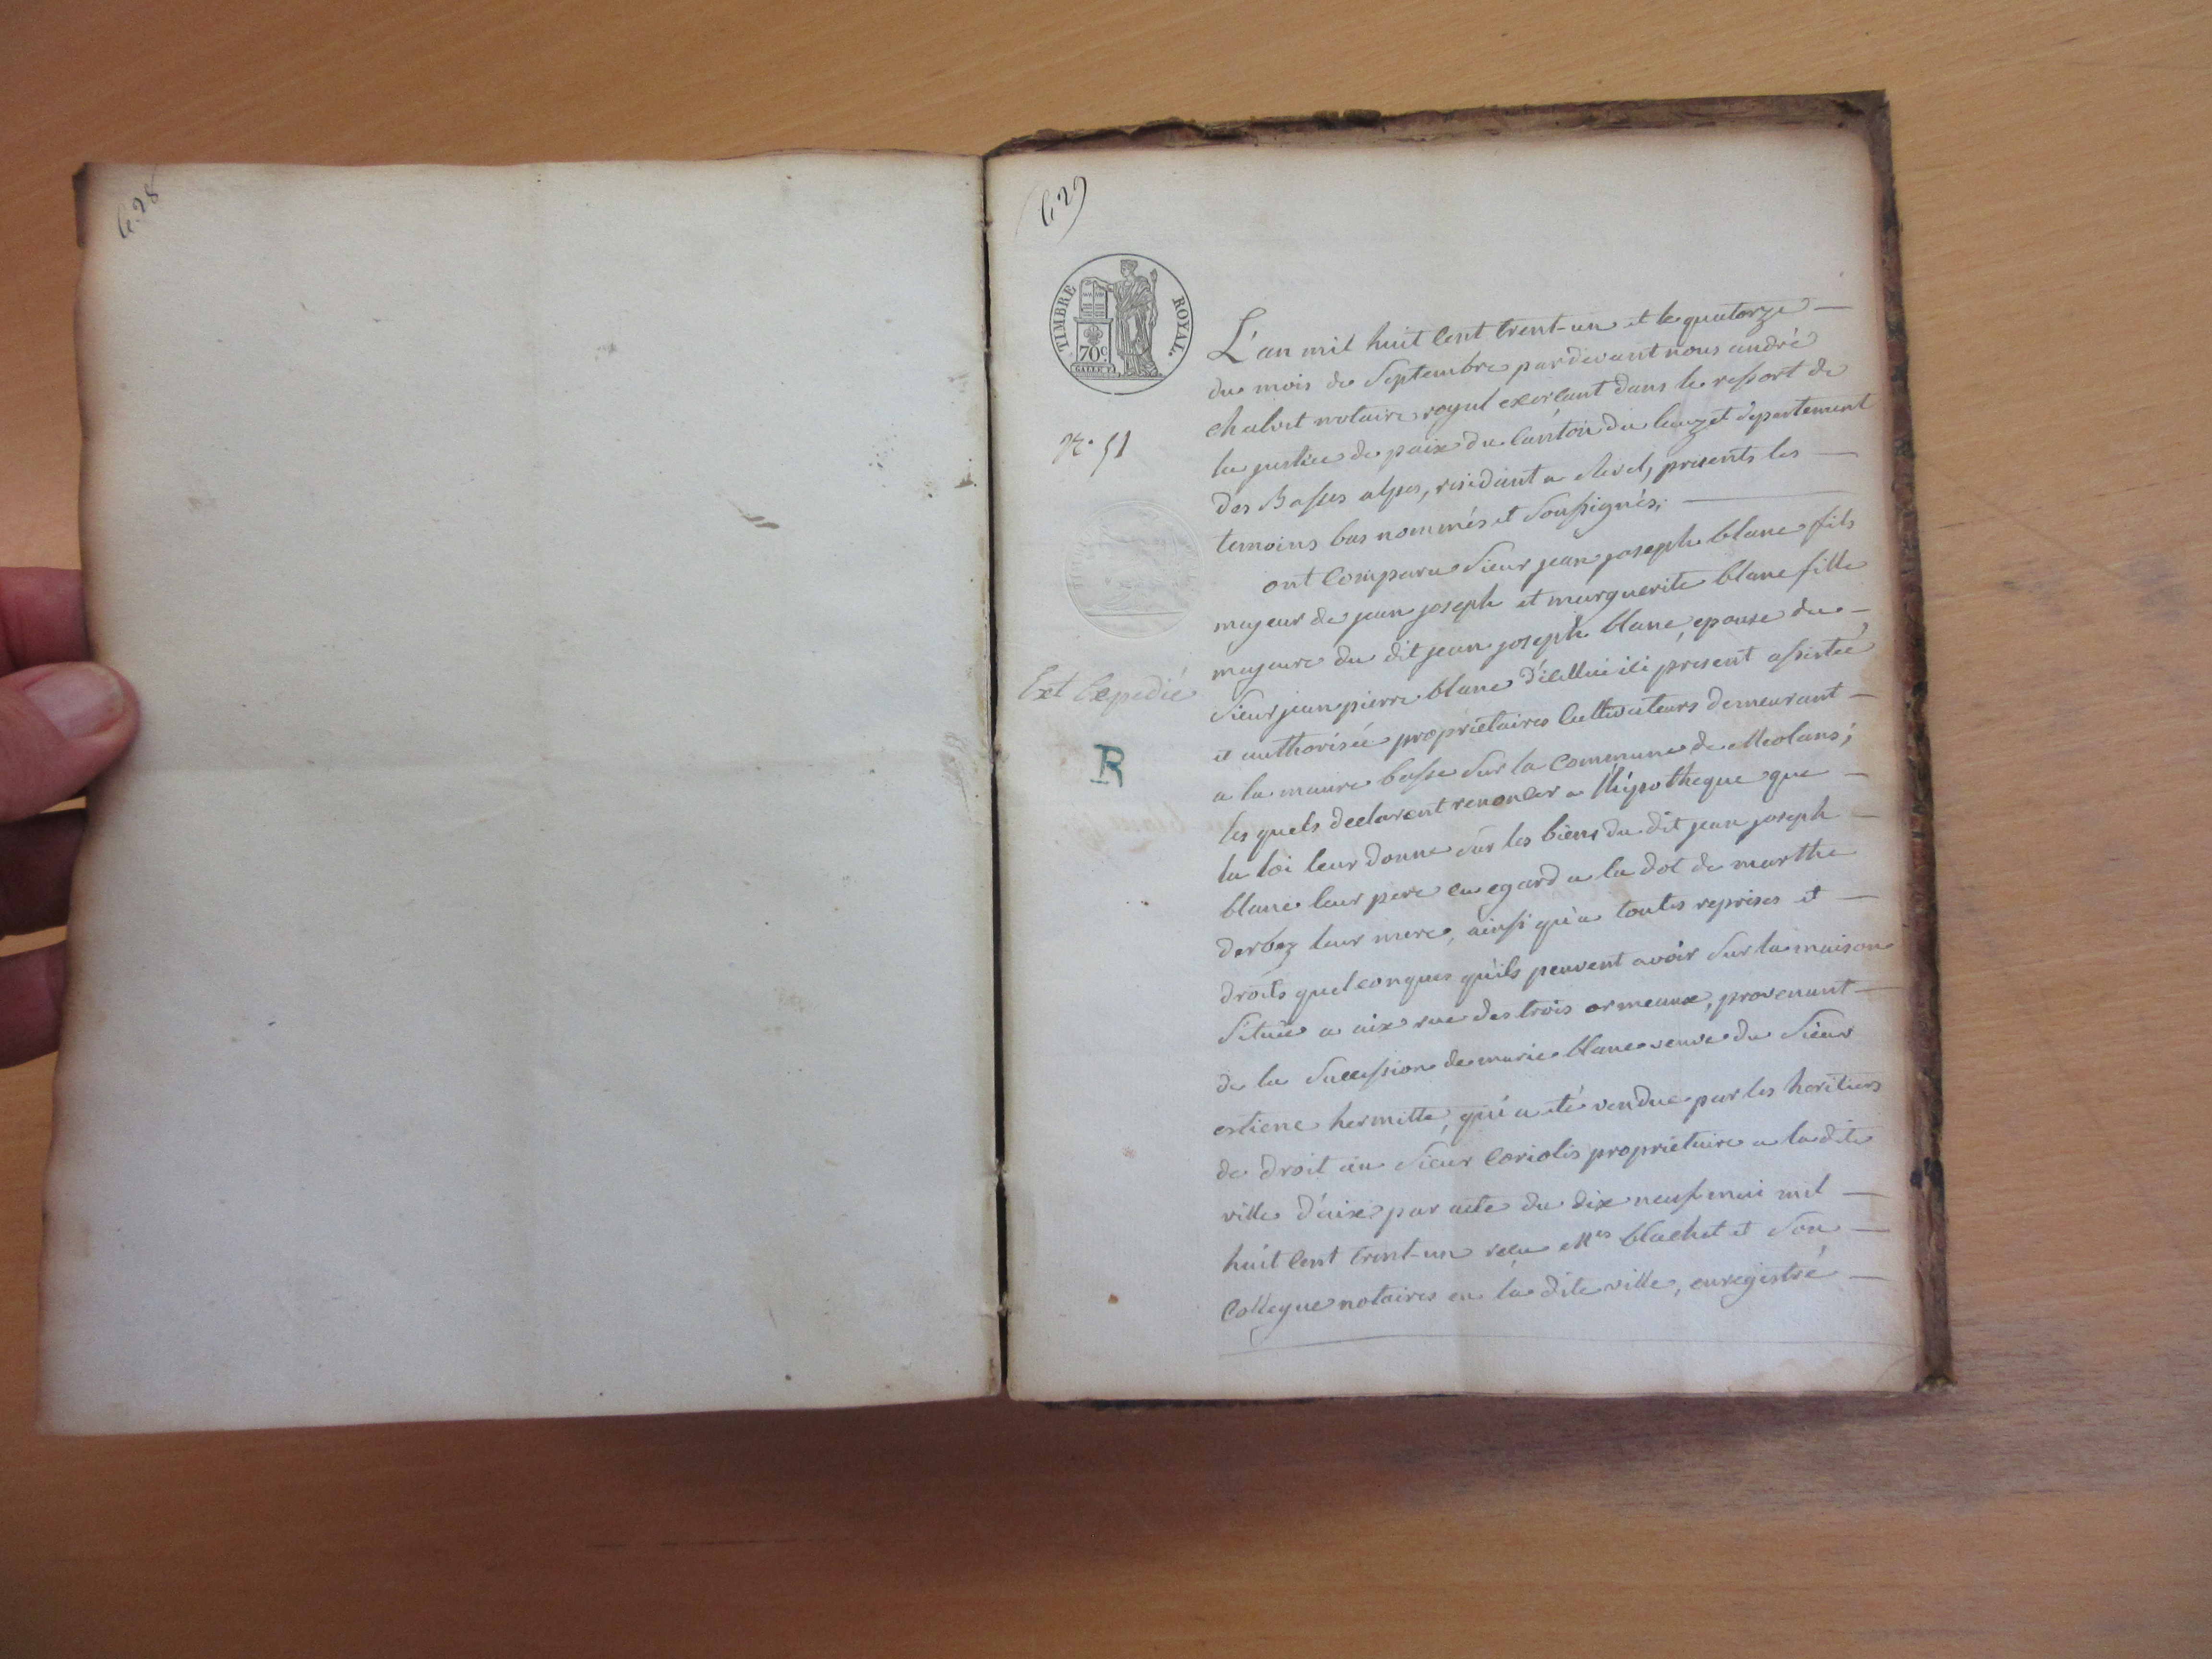 c. 28
c. 29
TIMBRE ROYAL.
70 c.
GALLE F.
N.° 51
Ext Expedié
R
L'an mil huit Cent trent-un et le quatorze —
du mois de Septembre pardevant nous andré
chabot notaire royal exerçant dans le ressort de
la justice de paix du Canton du lauzet departement
des Basses alpes, residant a revel, presents les —
temoins bas nommés et Soussignés; —
ont Comparu Sieur jean joseph blanc fils
majeur de jean joseph et marguerite blanc fille
majeure du dit jean joseph blanc, epouse du —
Sieur jean pierre blanc d'icellui ici present assistée
et authorisée propriétaires Cultivateurs demeurant —
a la maure basse Sur la Commune de Meolans;
les quels declarent renoncer a l'hipotheque que —
la loi leur donne sur les biens du dit jean joseph —
blanc leur pere eu egard a la dot de marthe
derbez leur mere, ainsi qu'a toutes reprises et —
droits quelconques qu'ils peuvent avoir Sur la maison
Située a aix rue des trois ormeaux, provenant —
de la Succession de marie blanc veuve du Sieur
estiene hermitte, qui a eté vendue par les heritiers
de droit au Sieur Coriolis proprietaire a la dite
ville d'aix par acte du dix neuf mai mil —
huit Cent trent-un recu Mes blachet et Son —
Collegue notaires en la dite ville, enregistré —